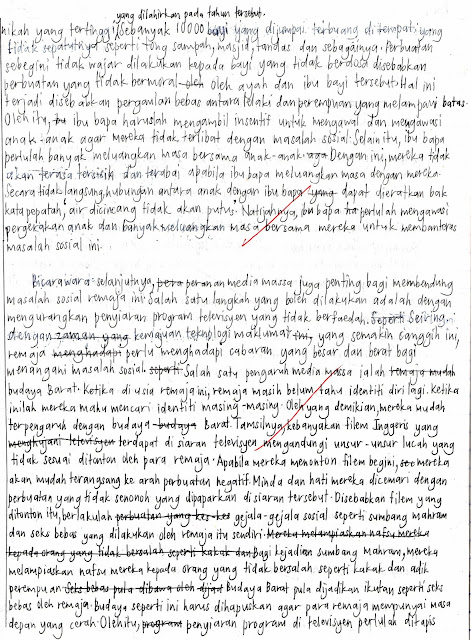 yang dilahirkan pada tahun tersebut.
nikah yang tertinggi. Sebanyak 10000 bayi yang dijumpai terbuang di tempat yang
tidak sepatutnya seperti tong sampah, masjid, tandas dan sebagainya. Perbuatan
sebegini tidak wajar dilakukan kepada bayi yang tidak berdosa disebabkan
perbuatan yang tidak bermoral oleh oleh ayah dan ibu bayi tersebut. Hal ini
terjadi disebabkan pergaulan bebas antara lelaki dan perempuan yang melampaui batas.
Oleh itu, ibu bapa haruslah mengambil insentif untuk mengawal dan mengawasi
anak-anak agar mereka tidak terlibat dengan masalah sosial. Selain itu, ibu bapa
perlulah banyak meluangkan masa bersama anak-anak. Dengan ini, mereka tidak
akan terasa tersisih dan terabai apabila ibu bapa meluangkan masa dengan mereka.
Secara tidak langsung, hubungan antara anak dengan ibu bapa yang dapat dieratkan bak
kata pepatah, 'air dicincang tidak akan putus'. Natijahnya, ibu bapa perlulah mengawasi
pergerakan anak dan banyak meluangkan masa bersama mereka untuk membanteras
masalah sosial ini.
Bicarawara selanjutnya, pera peranan media massa juga penting bagi membendung
masalah sosial remaja ini. Salah satu langkah yang boleh dilakukan adalah dengan
mengurangkan penyiaran program televisyen yang tidak berfaedah. Seperti Seiring
dengan zaman yang kemajuan teknologi maklumat ini, yang semakin canggih ini,
remaja menghadapi perlu menghadapi cabaran yang besar dan berat bagi
menangani masalah sosial. seperti Salah satu pengaruh media massa ialah remaja mudah
budaya Barat. Ketika di usia remaja ini, remaja masih belum tahu identiti diri lagi. Ketika
inilah mereka mahu mencari identiti masing-masing. Oleh yang demikian, mereka mudah
terpengaruh dengan budaya-budaya Barat. Tamsilnya, kebanyakan filem Inggeris yang
menghujani televisyen terdapat di siaran televisyen mengandungi unsur-unsur lucah yang
tidak sesuai ditonton oleh para remaja. Apabila mereka menonton filem begini, mereka
akan mudah terangsang ke arah perbuatan negatif. Minda dan hati mereka dicemari dengan
perbuatan yang tidak senonoh yang dipaparkan di siaran tersebut. Disebabkan filem yang
ditonton itu, berlakulah perbuatan yang kes-kes gejala-gejala sosial seperti sumbang mahram
dan seks bebas yang dilakukan oleh remaja itu sendiri. Mereka melampiaskan nafsu mereka
kepada orang yang tidak bersalah seperti kakak dan Bagi kejadian sumbang mahram, mereka
melampiaskan nafsu mereka kepada orang yang tidak bersalah seperti kakak dan adik
perempuan. Seks bebas pula dibawa oleh dijad Budaya Barat pula dijadikan ikutan seperti seks
bebas oleh remaja. Budaya seperti ini harus dihapuskan agar para remaja mempunyai masa
depan yang cerah. Oleh itu, program penyiaran program di televisyen perlulah ditapis